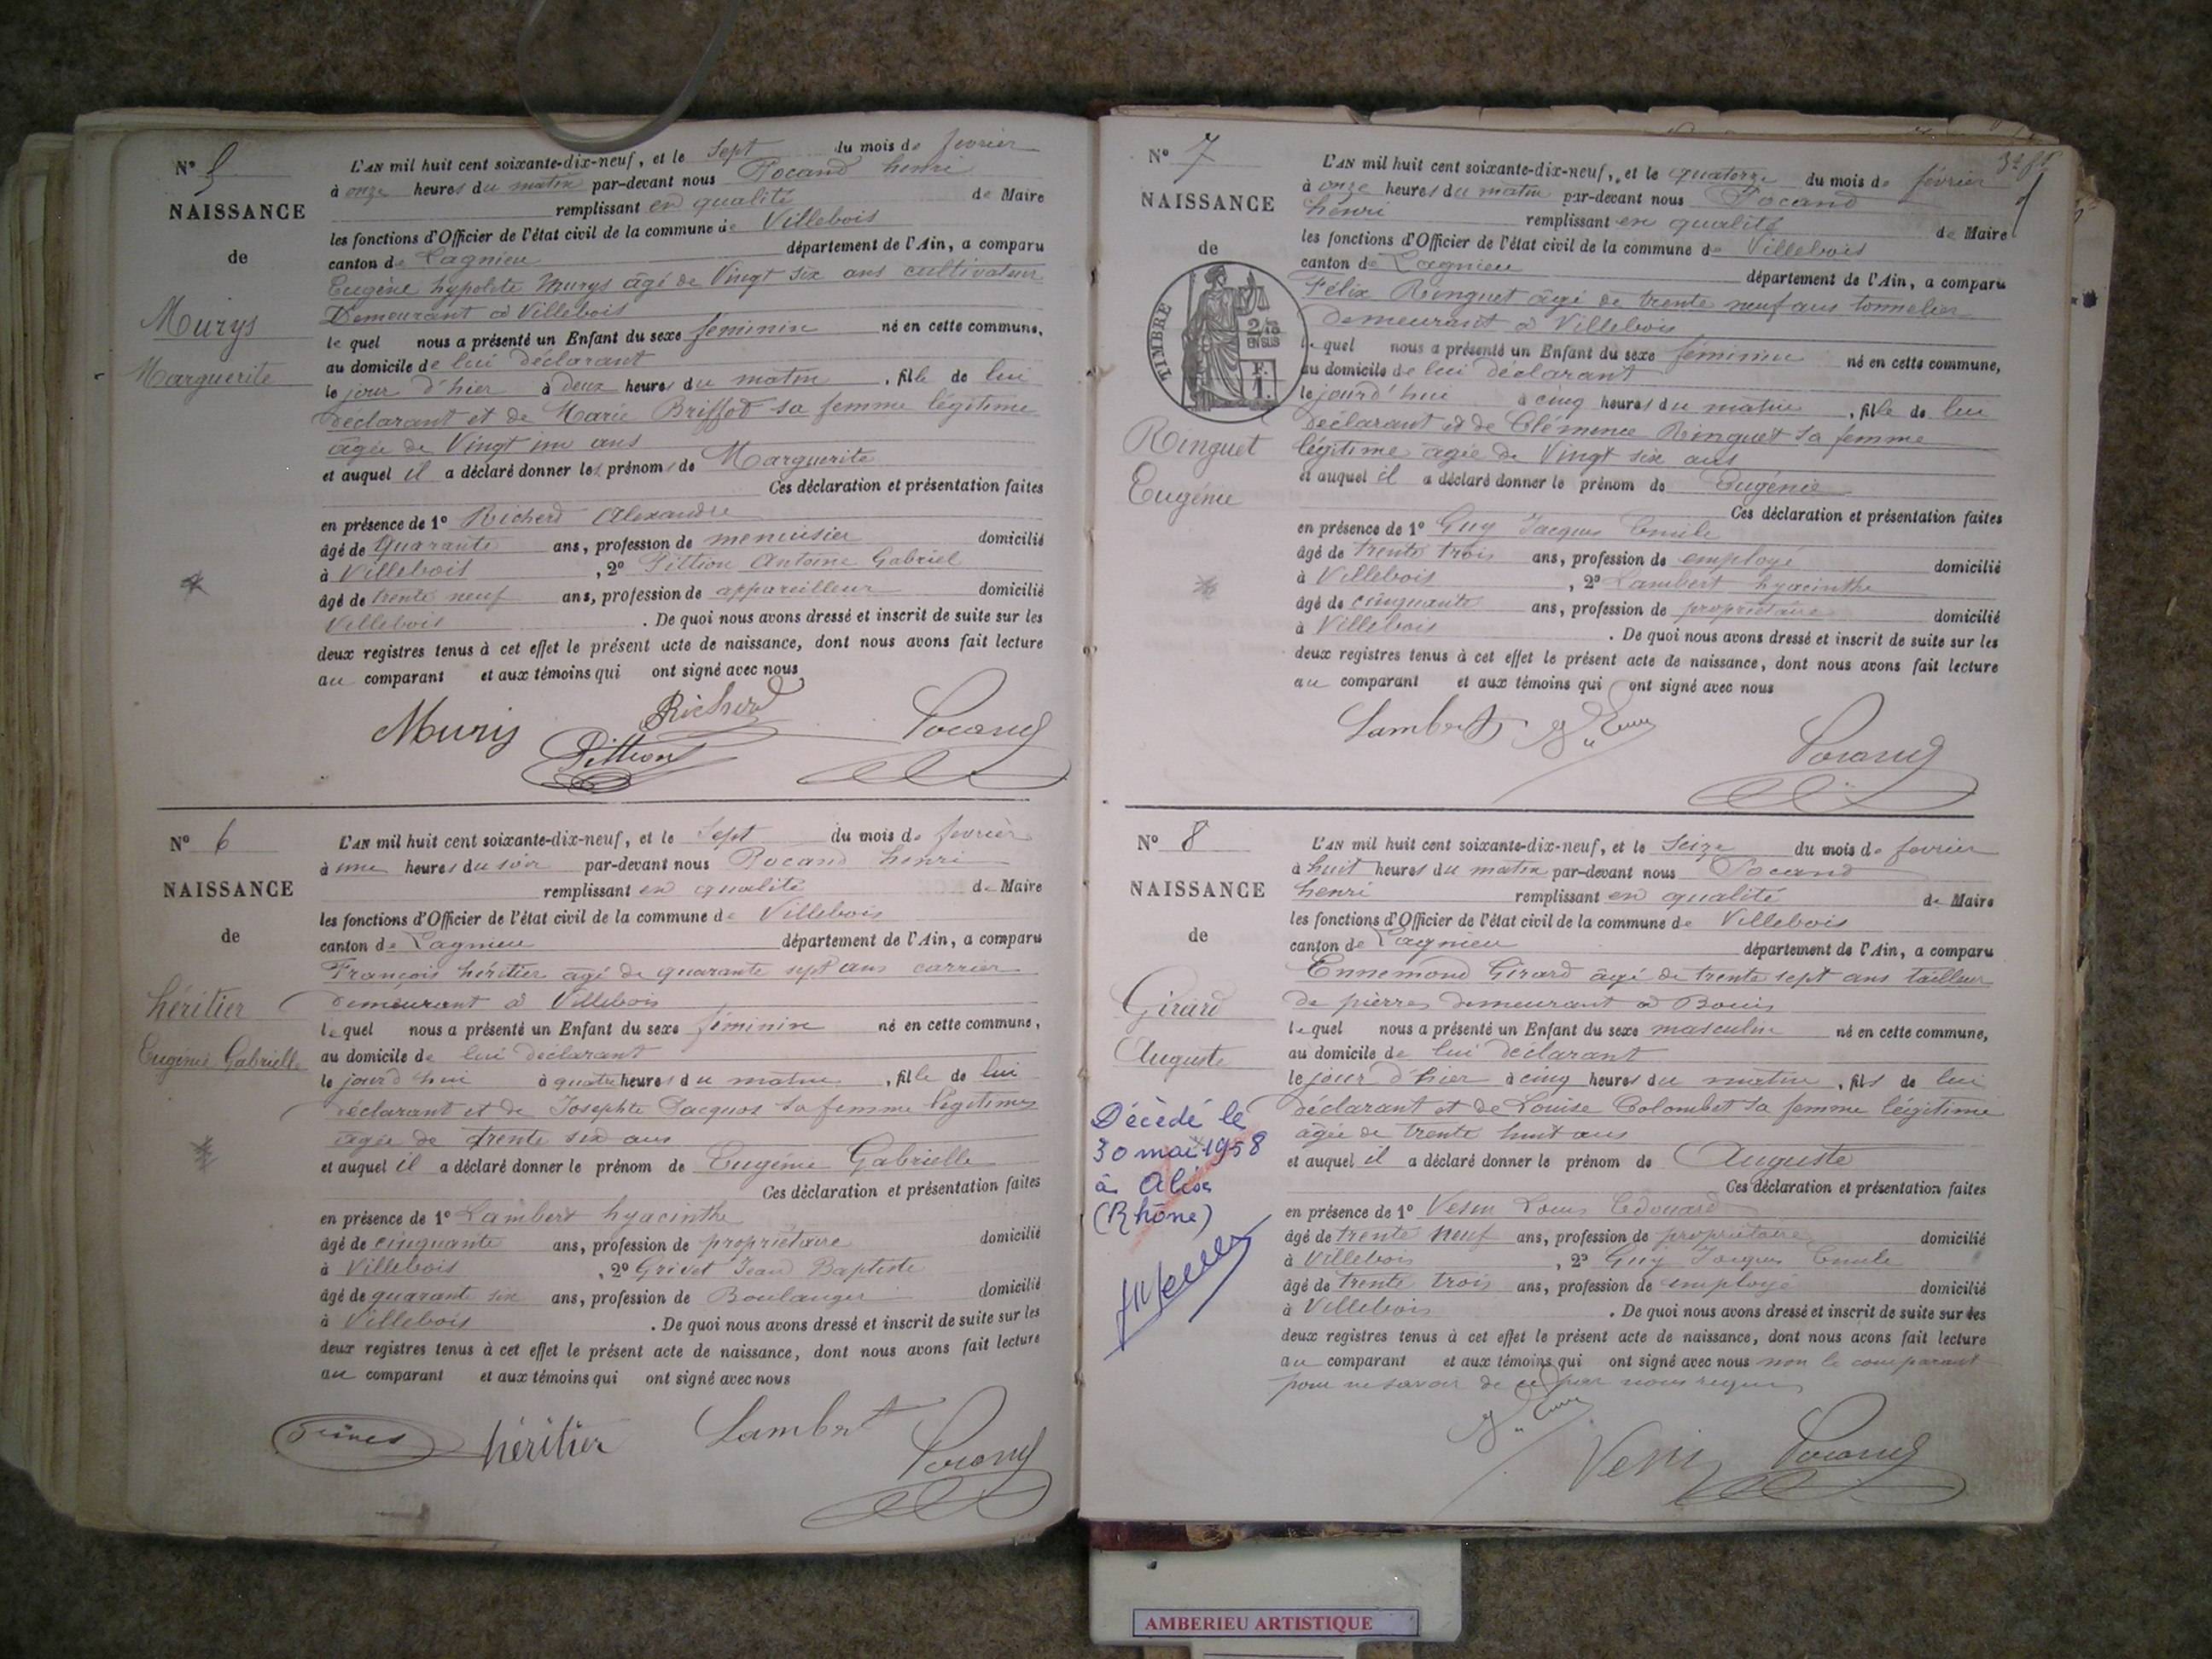 N° 5
NAISSANCE
de
Murys
Marguerite
L'AN mil huit cent soixante-dix-neuf, et le sept du mois de fevrier
à onze heures du matin par-devant nous Pocand henri
remplissant en qualité de Maire
les fonctions d'Officier de l'état civil de la commune de Villebois
canton de Lagnieu département de l'Ain, a comparu
Eugène hypolite Murys âgé de Vingt six ans cultivateur
Demeurant à Villebois
le quel nous a présenté un Enfant du sexe féminin né en cette commune,
au domicile de lui déclarant
le jour d'hier à deux heures du matin, fille de lui
déclarant et de Marie Briffod sa femme légitime
âgée de Vingt un ans
et auquel il a déclaré donner les prénoms de Marguerite
Ces déclaration et présentation faites
en présence de 1° Richerd Alexandre
âgé de quarante ans, profession de menuisier domicilié
à Villebois, 2° Pittion Antoine Gabriel
âgé de trente neuf ans, profession de appareilleur domicilié
Villebois. De quoi nous avons dressé et inscrit de suite sur les
deux registres tenus à cet effet le présent acte de naissance, dont nous avons fait lecture
au comparant et aux témoins qui ont signé avec nous
Muris Richerd Pocand
Pittion
N° 6
NAISSANCE
de
héritier
Eugénie Gabrielle
L'AN mil huit cent soixante-dix-neuf, et le Sept du mois de fevrier
à une heures du soir par-devant nous Pocand henri
remplissant en qualité de Maire
les fonctions d'Officier de l'état civil de la commune de Villebois
canton de Lagnieu département de l'Ain, a comparu
François héritier âgé de quarante sept ans carrier
demeurant à Villebois
le quel nous a présenté un Enfant du sexe féminin né en cette commune,
au domicile de lui déclarant
le jourd'hui à quatre heures du matin, fille de lui
déclarant et de Josephte Pacquos sa femme légitime
âgée de trente six ans
et auquel il a déclaré donner le prénom de Eugénie Gabrielle
Ces déclaration et présentation faites
en présence de 1° Lambert hyacinthe
âgé de cinquante ans, profession de propriétaire domicilié
à Villebois, 2° Grivet Jean Baptiste
âgé de quarante six ans, profession de Boulanger domicilié
à Villebois. De quoi nous avons dressé et inscrit de suite sur les
deux registres tenus à cet effet le présent acte de naissance, dont nous avons fait lecture
au comparant et aux témoins qui ont signé avec nous
héritier Lambert Pocand
N° 7
NAISSANCE
de
TIMBRE
2/10
EN SUS
F.
1.
Ringuet
Eugénie
L'AN mil huit cent soixante-dix-neuf, et le quatorze du mois de février
à onze heures du matin par-devant nous Pocand
henri remplissant en qualité de Maire
les fonctions d'Officier de l'état civil de la commune de Villebois
canton de Lagnieu département de l'Ain, a comparu
Félix Ringuet âgé de trente neuf ans tonnelier
demeurant à Villebois
le quel nous a présenté un Enfant du sexe féminin né en cette commune,
au domicile de lui déclarant
le jourd'hui à cinq heures du matin, fille de lui
déclarant et de Clémence Ringuet sa femme
légitime âgée de Vingt six ans
et auquel il a déclaré donner le prénom de Eugénie
Ces déclaration et présentation faites
en présence de 1° Guy Jacques Emile
âgé de trente trois ans, profession de employé domicilié
à Villebois, 2° Lambert hyacinthe
âgé de cinquante ans, profession de propriétaire domicilié
à Villebois. De quoi nous avons dressé et inscrit de suite sur les
deux registres tenus à cet effet le présent acte de naissance, dont nous avons fait lecture
au comparant et aux témoins qui ont signé avec nous
Lambert Pocand
N° 8
NAISSANCE
de
Girard
Auguste
Décédé le
30 mai 1958
à Alix
(Rhône)
L'AN mil huit cent soixante-dix-neuf, et le Seize du mois de fevrier
à huit heures du matin par-devant nous Pocand
henri remplissant en qualité de Maire
les fonctions d'Officier de l'état civil de la commune de Villebois
canton de Lagnieu département de l'Ain, a comparu
Ennemond Girard âgé de trente sept ans tailleur
de pierres demeurant à Bouis
le quel nous a présenté un Enfant du sexe masculin né en cette commune,
au domicile de lui déclarant
le jour d'hier à cinq heures du matin, fils de lui
déclarant et de Louise Colombet sa femme légitime
âgée de trente huit ans
et auquel il a déclaré donner le prénom de Auguste
Ces déclaration et présentation faites
en présence de 1° Vesin Louis Edouard
âgé de trente neuf ans, profession de propriétaire domicilié
à Villebois, 2° Guy Jacques Emile
âgé de trente trois ans, profession de employé domicilié
à Villebois. De quoi nous avons dressé et inscrit de suite sur les
deux registres tenus à cet effet le présent acte de naissance, dont nous avons fait lecture
au comparant et aux témoins qui ont signé avec nous non le comparant
pour ne savoir de ce par nous requis
Vesin Pocand
AMBERIEU ARTISTIQUE